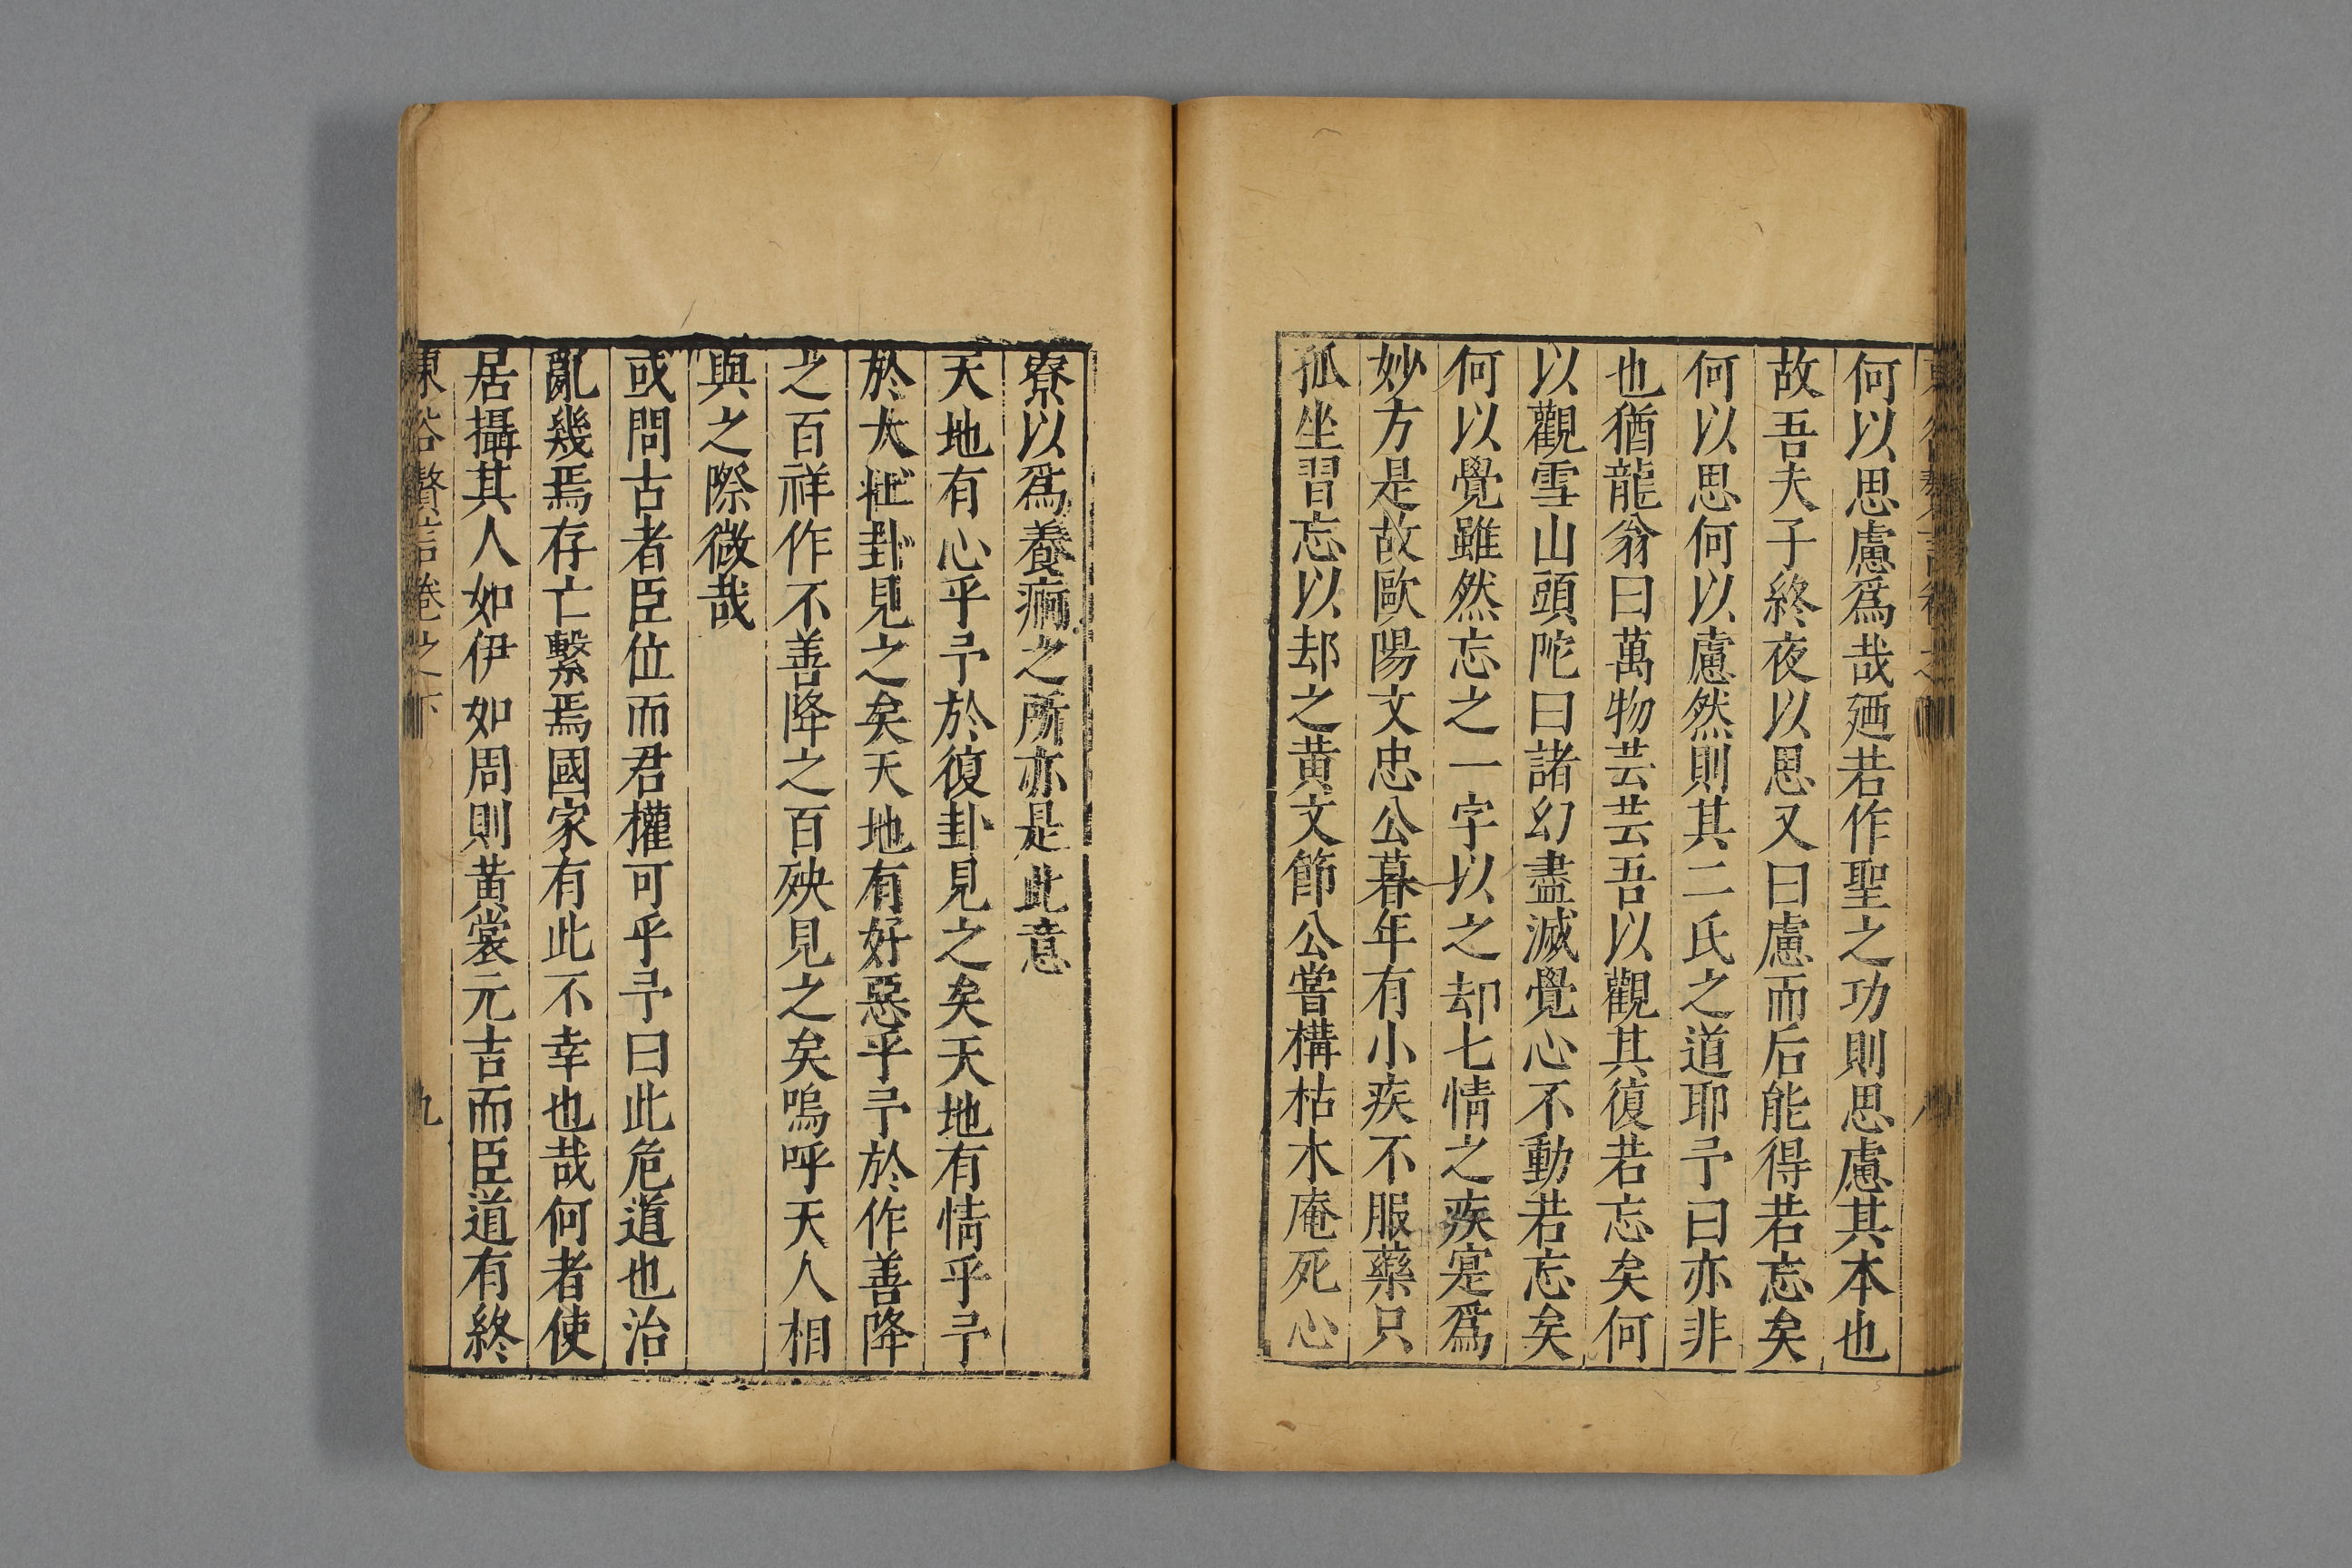 何以思慮爲哉廼若作聖之功則思慮其本也
故吾夫子終夜以思又曰慮而后能得若忘矣
何以思何以慮然則其二氏之道耶予曰亦非
也猶龍翁曰萬物芸芸吾以觀其復若忘矣何
以觀雪山頭陀曰諸幻盡滅覺心不動若忘矣
何以覺雖然忘之一字以之却七情之疾寔爲
妙方是故歐陽文忠公暮年有小疾不服藥只
孤坐習忘以却之黃文節公嘗構枯木庵死心
寮以爲養痾之所亦是此意
天地有心乎予於復卦見之矣天地有情乎予
於大壯卦見之矣天地有好惡乎予於作善降
之百祥作不善降之百殃見之矣嗚呼天人相
與之際微哉
或問古者臣位而君權可乎予曰此危道也治
亂幾焉存亡繫焉國家有此不幸也哉何者使
居攝其人如伊如周則黃裳元吉而臣道有終
東谷贅言卷之下 九